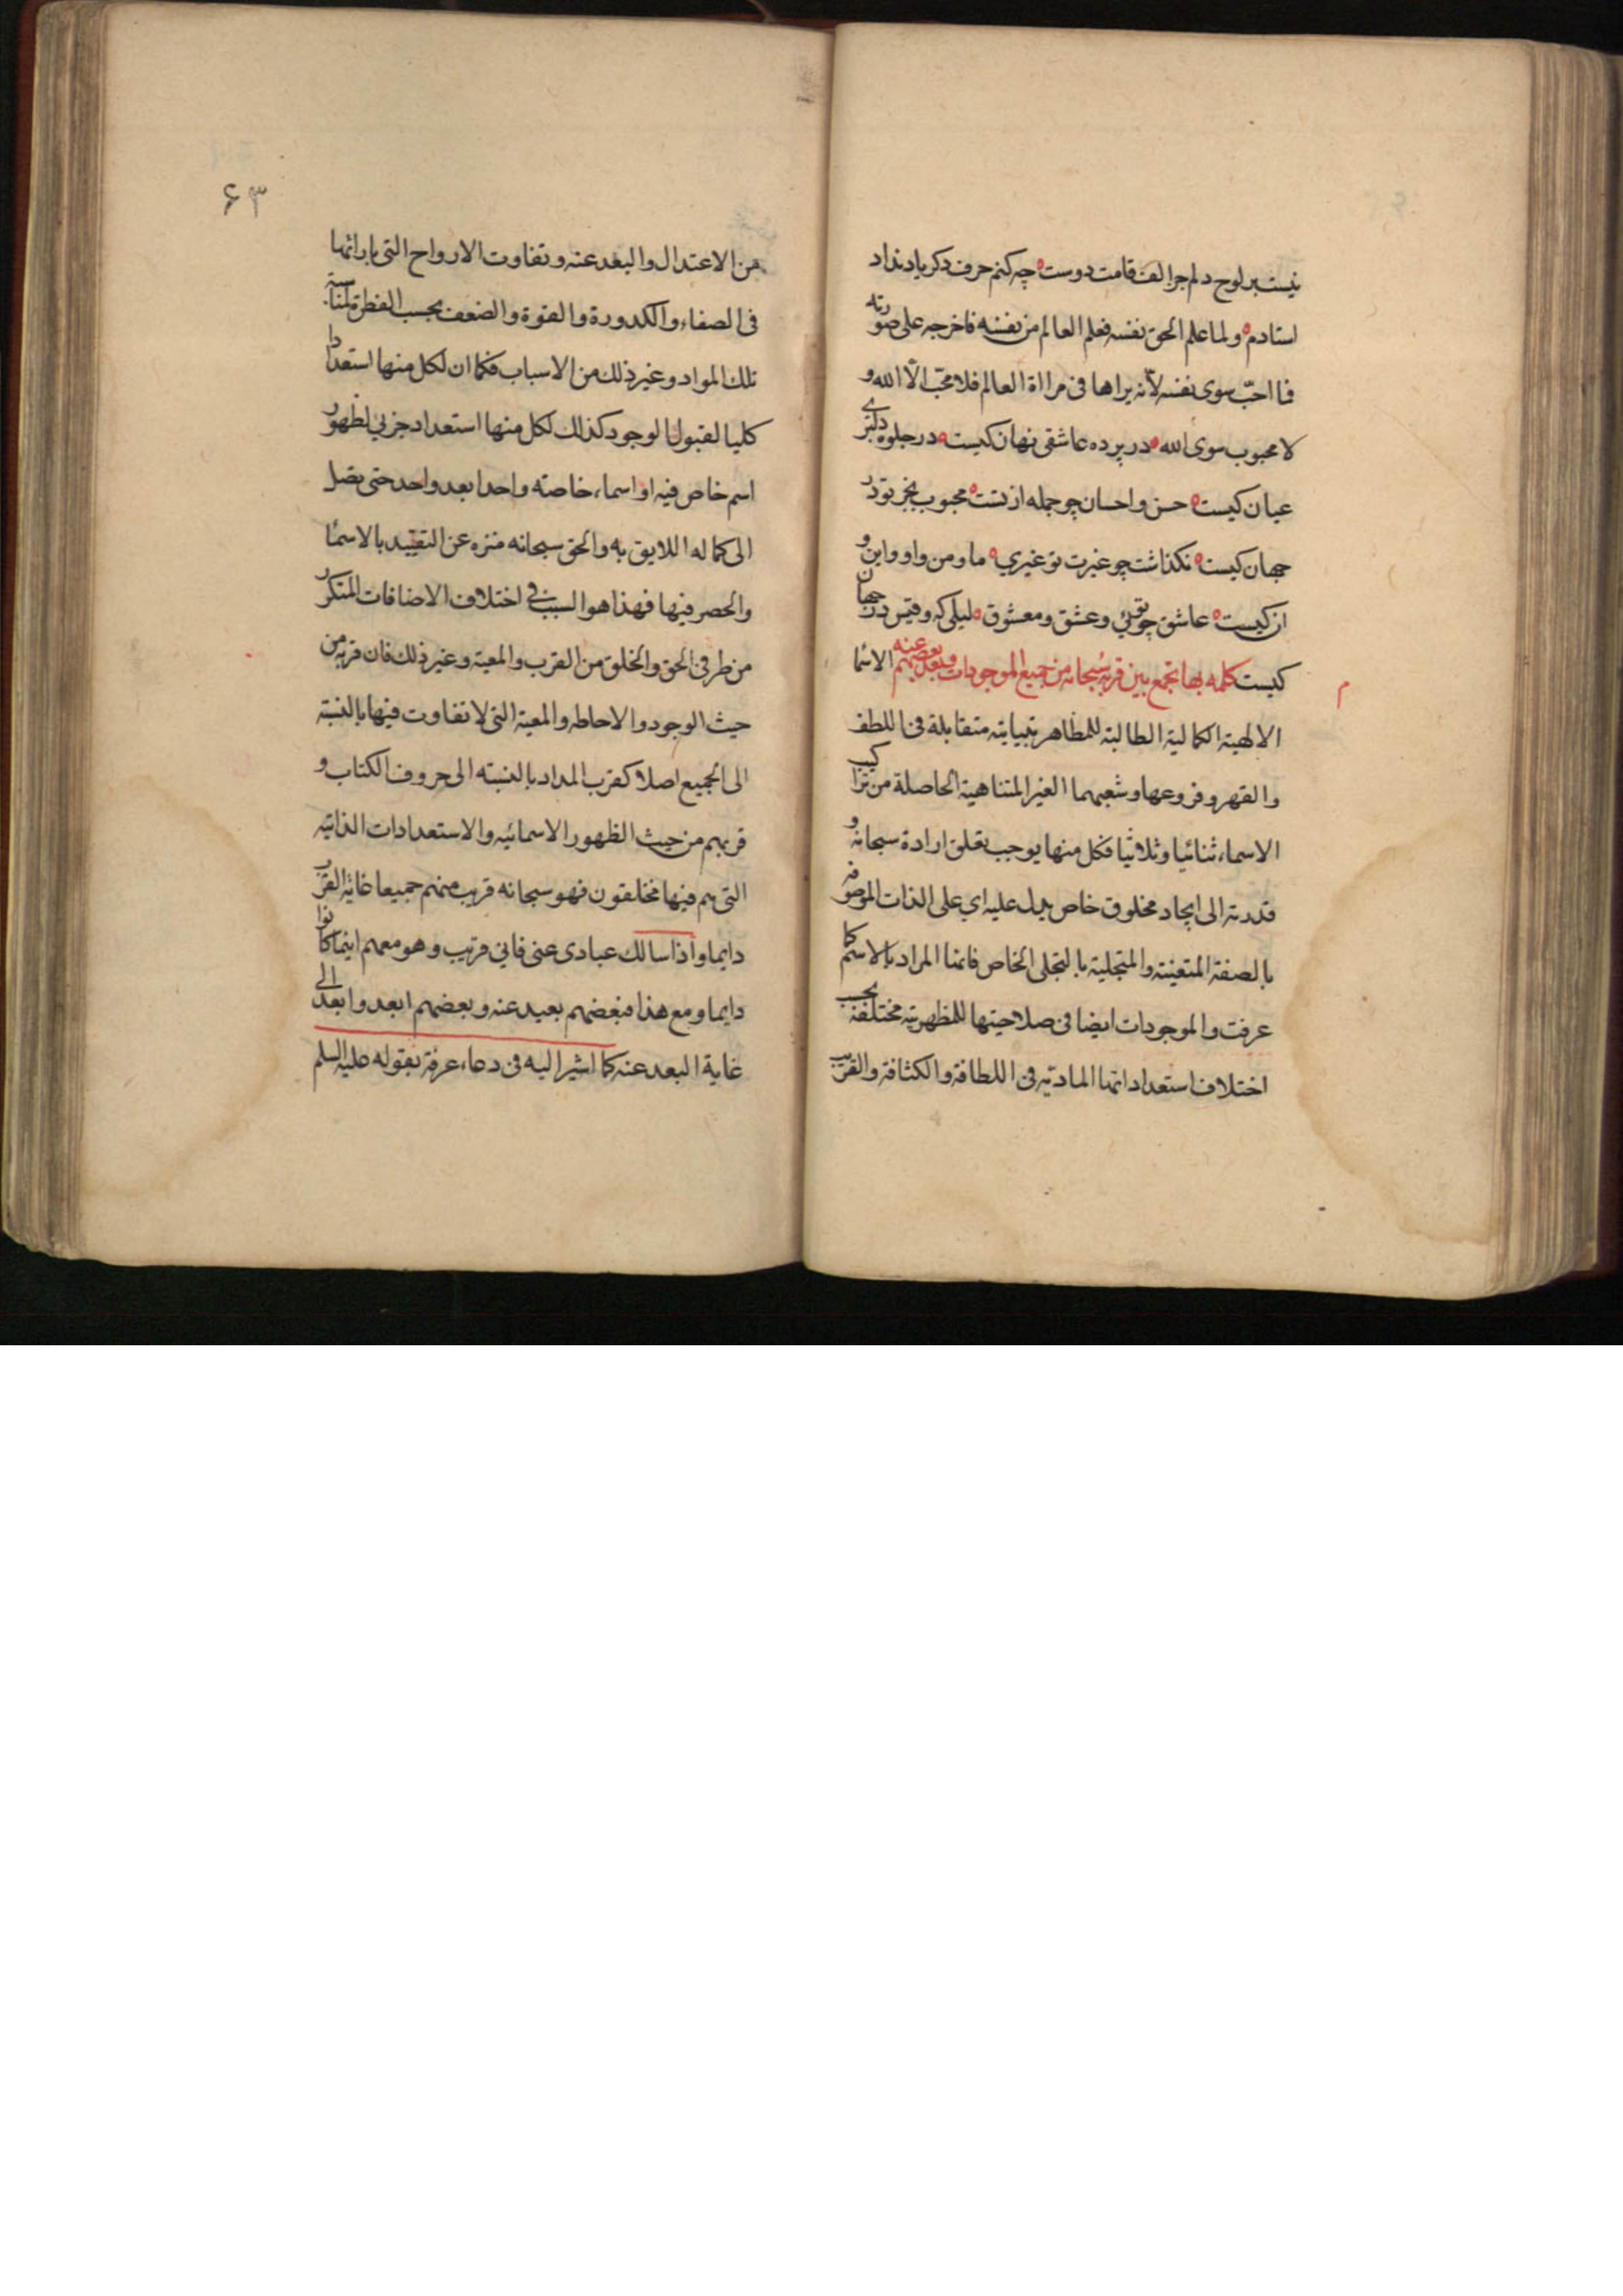 نیست بر لوح دلم جز الف قامت دوست چه کنم حرف دکر یاد نداد
استادم ولما علم الحق نفسه فعلم العالم من نفسه فاخرجه علی صورته
فما احبّ سوی نفسه لأنه یراها فی مرااة العالم فلا محبّ الّا الله و
لا محبوب سوی الله در پرده عاشقی نهان کیست در جلوه دلبری
عیان کیست حسن واحسان چو جمله از تست محبوب بجز تو در
جهان کیست نکذاشت چو غیرت تو غیری ما و من واو واین و
ان کیست عاشق چو توئی وعشق ومعشوق لیلی که وقیس در جهان
کیست کلمه بها تجمع بین قربه سبحانه من جمیع الموجودات وبعد بعضهم عنه الاسما
الالهیة الکمالیة الطالبة للمظاهر متباینة متقابلة فی اللطف
والقهر وفروعها وشعبهما الغیر المتناهیة الحاصلة من تراکیب
الاسماء ثنائیا وثلاثیا فکل منها یوجب تعلق ارادة سبحانه و
قدرته الی ایجاد مخلوق خاص یدل علیه ای علی الذات الموصوفه
بالصفة المتعینة والمتجلیة بالتجلی الخاص فانما المراد بالاسم کما
عرفت والموجودات ایضا فی صلاحیتها للمظهریة مختلفة بحسب
اختلاف استعداداتها المادیة فی اللطافة والکثافة والقرب
۶۳
من الاعتدال والبعد عنه وتفاوت الارواح التی بازائها
فی الصفاء والکدورة والقوة والضعف بحسب الفطرة لمناسبة
تلك المواد وغیر ذلك من الاسباب فکما ان لکل منها استعدادا
کلیا لقبول الوجود کذلك لکل منها استعداد جزئی لظهور
اسم خاص فیه او اسماء خاصته واحدا بعد واحد حتی یصل
الی کماله اللایق به والحق سبحانه منزه عن التقیید بالاسماء
والحصر فیها فهذا هو السبب فی اختلاف الاضافات المتکرر
من طرفی الحق والخلق من القرب والمعیة وغیر ذلك فان قربه من
حیث الوجود والاحاطه والمعیة التی لا تفاوت فیها بالنسبة
الی الجمیع اصلا کقرب المداد بالنسبته الی حروف الکتاب و
قربهم من حیث الظهور الاسمائیه والاستعدادات الذاتیه
التی هم فیها مختلفون فهو سبحانه قریب منهم جمیعا غایة القرب
دایما واذا سالك عبادی عنی فانی قریب وهو معهم اینما کانوا
دایما ومع هذا فبعضهم بعید عنه وبعضهم ابعد وابعد الی
غایة البعد عنه کما اشیر الیه فی دعاء عرفة بقوله علیه السلم